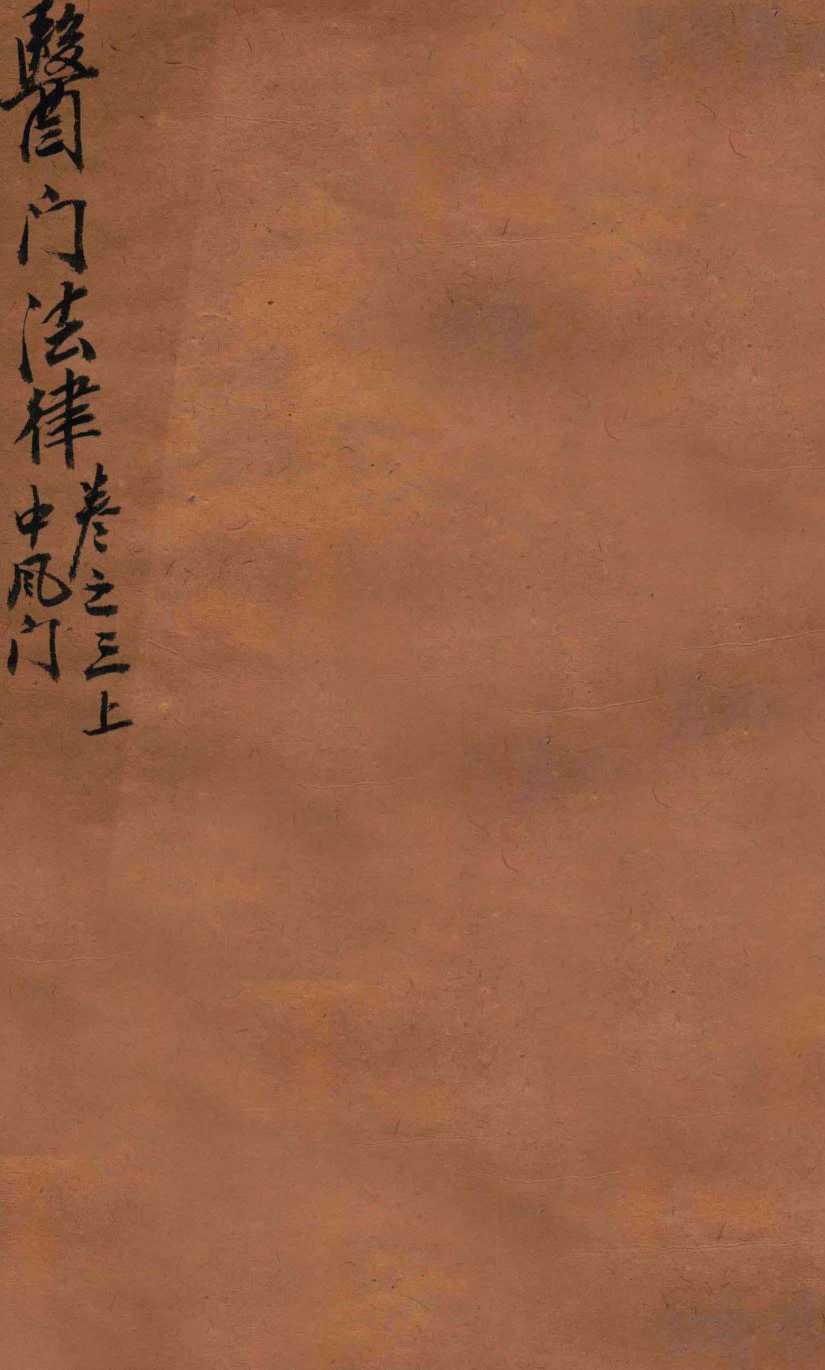 醫门法律
卷之三上
中风门